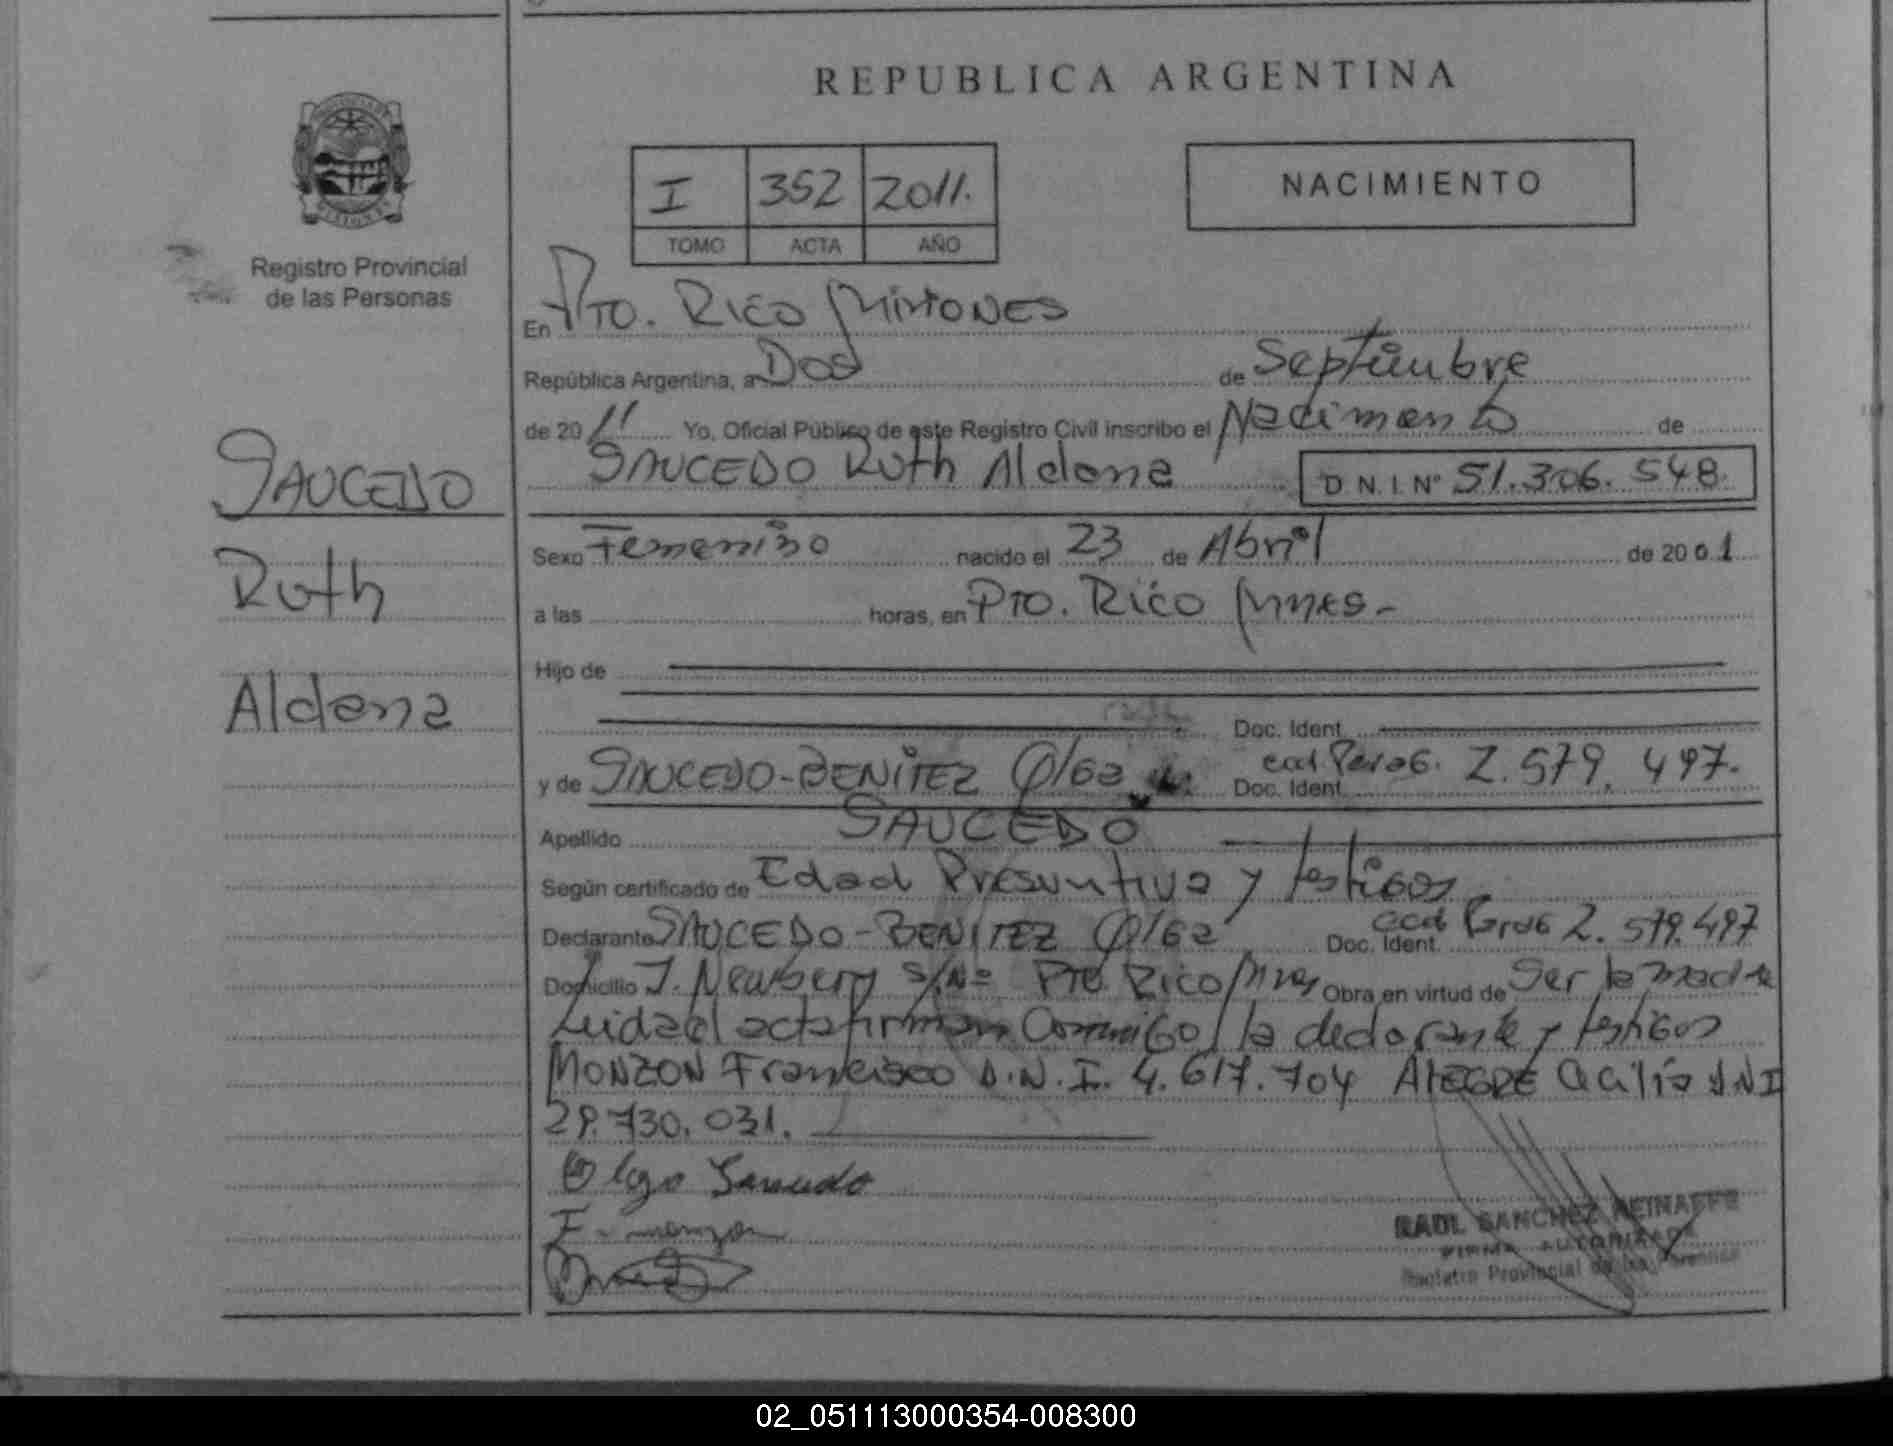 REPUBLICA ARGENTINA
I 352 2011.
TOMO ACTA AÑO
NACIMIENTO
Registro Provincial
de las Personas
SAUCEDO
Ruth
Aldana
En Pto. Rico Misiones
República Argentina, a Dos de Septiembre
de 2011 Yo, Oficial Público de este Registro Civil inscribo el Nacimiento de
SAUCEDO Ruth Aldana D.N.I. Nº 51.306.548.
Sexo Femenino nacido el 23 de Abril de 2001
a las horas, en Pto. Rico Mnes.-
Hijo de
Doc. Ident.
y de SAUCEDO-BENITEZ Olga Doc. Ident. 2.579.497.
Apellido SAUCEDO
Según certificado de Edad Presuntiva y testigos
Declarante SAUCEDO-BENITEZ Olga Doc. Ident. 2.579.497
Domicilio J. Newbery S/Nº Pto. Rico Mnes Obra en virtud de Ser la madre
Leida el acta firman Conmigo la declarante y testigos
MONZON Francisco D.N.I. 4.617.704 ALEGRE Cecilia DNI
29.730.031.
Olga Saucedo
F. monzon
RAUL SANCHEZ REINAFFE
FIRMA AUTORIZADA
Registro Provincial de las Personas
02_051113000354-008300